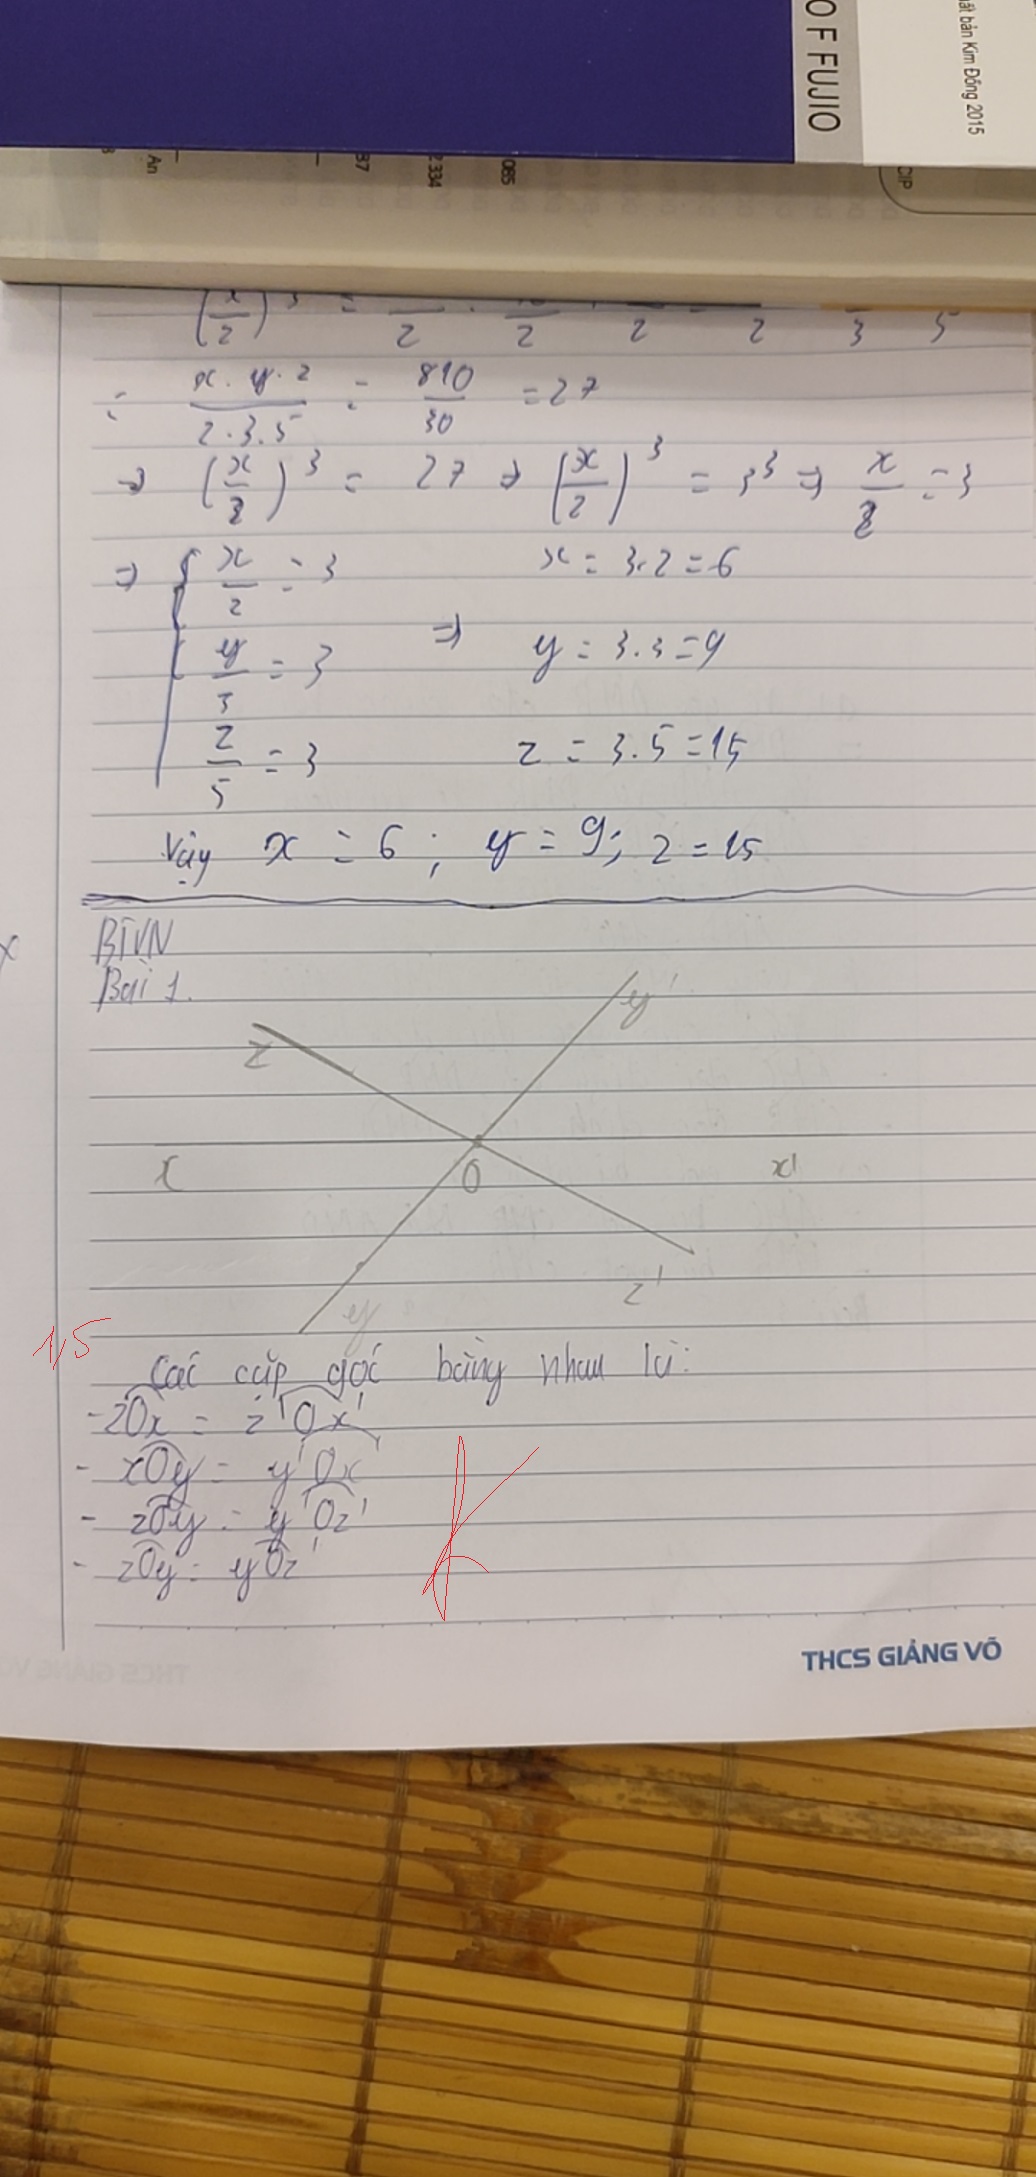 O F FUJIO
ất bản Kim Đồng 2015
Ấn
87
2334
085
CIP
(x/2)^3 =
= x.y.z/2.3.5 = 810/30 = 27
=> (x/2)^3 = 27 => (x/2)^3 = 3^3 => x/2 = 3
=> { x/2 = 3 x = 3.2 = 6
y/3 = 3 => y = 3.3 = 9
z/5 = 3 z = 3.5 = 15
Vậy x = 6 ; y = 9; z = 15
BTVN
Bài 1.
y'
z
x
O
x'
z'
y
1,5
Các cặp góc bằng nhau là:
- zOx = z'Ox'
- xOy = y'Ox'
- zOy = y'Oz'
- zOy' = yOz'
THCS GIẢNG VÕ